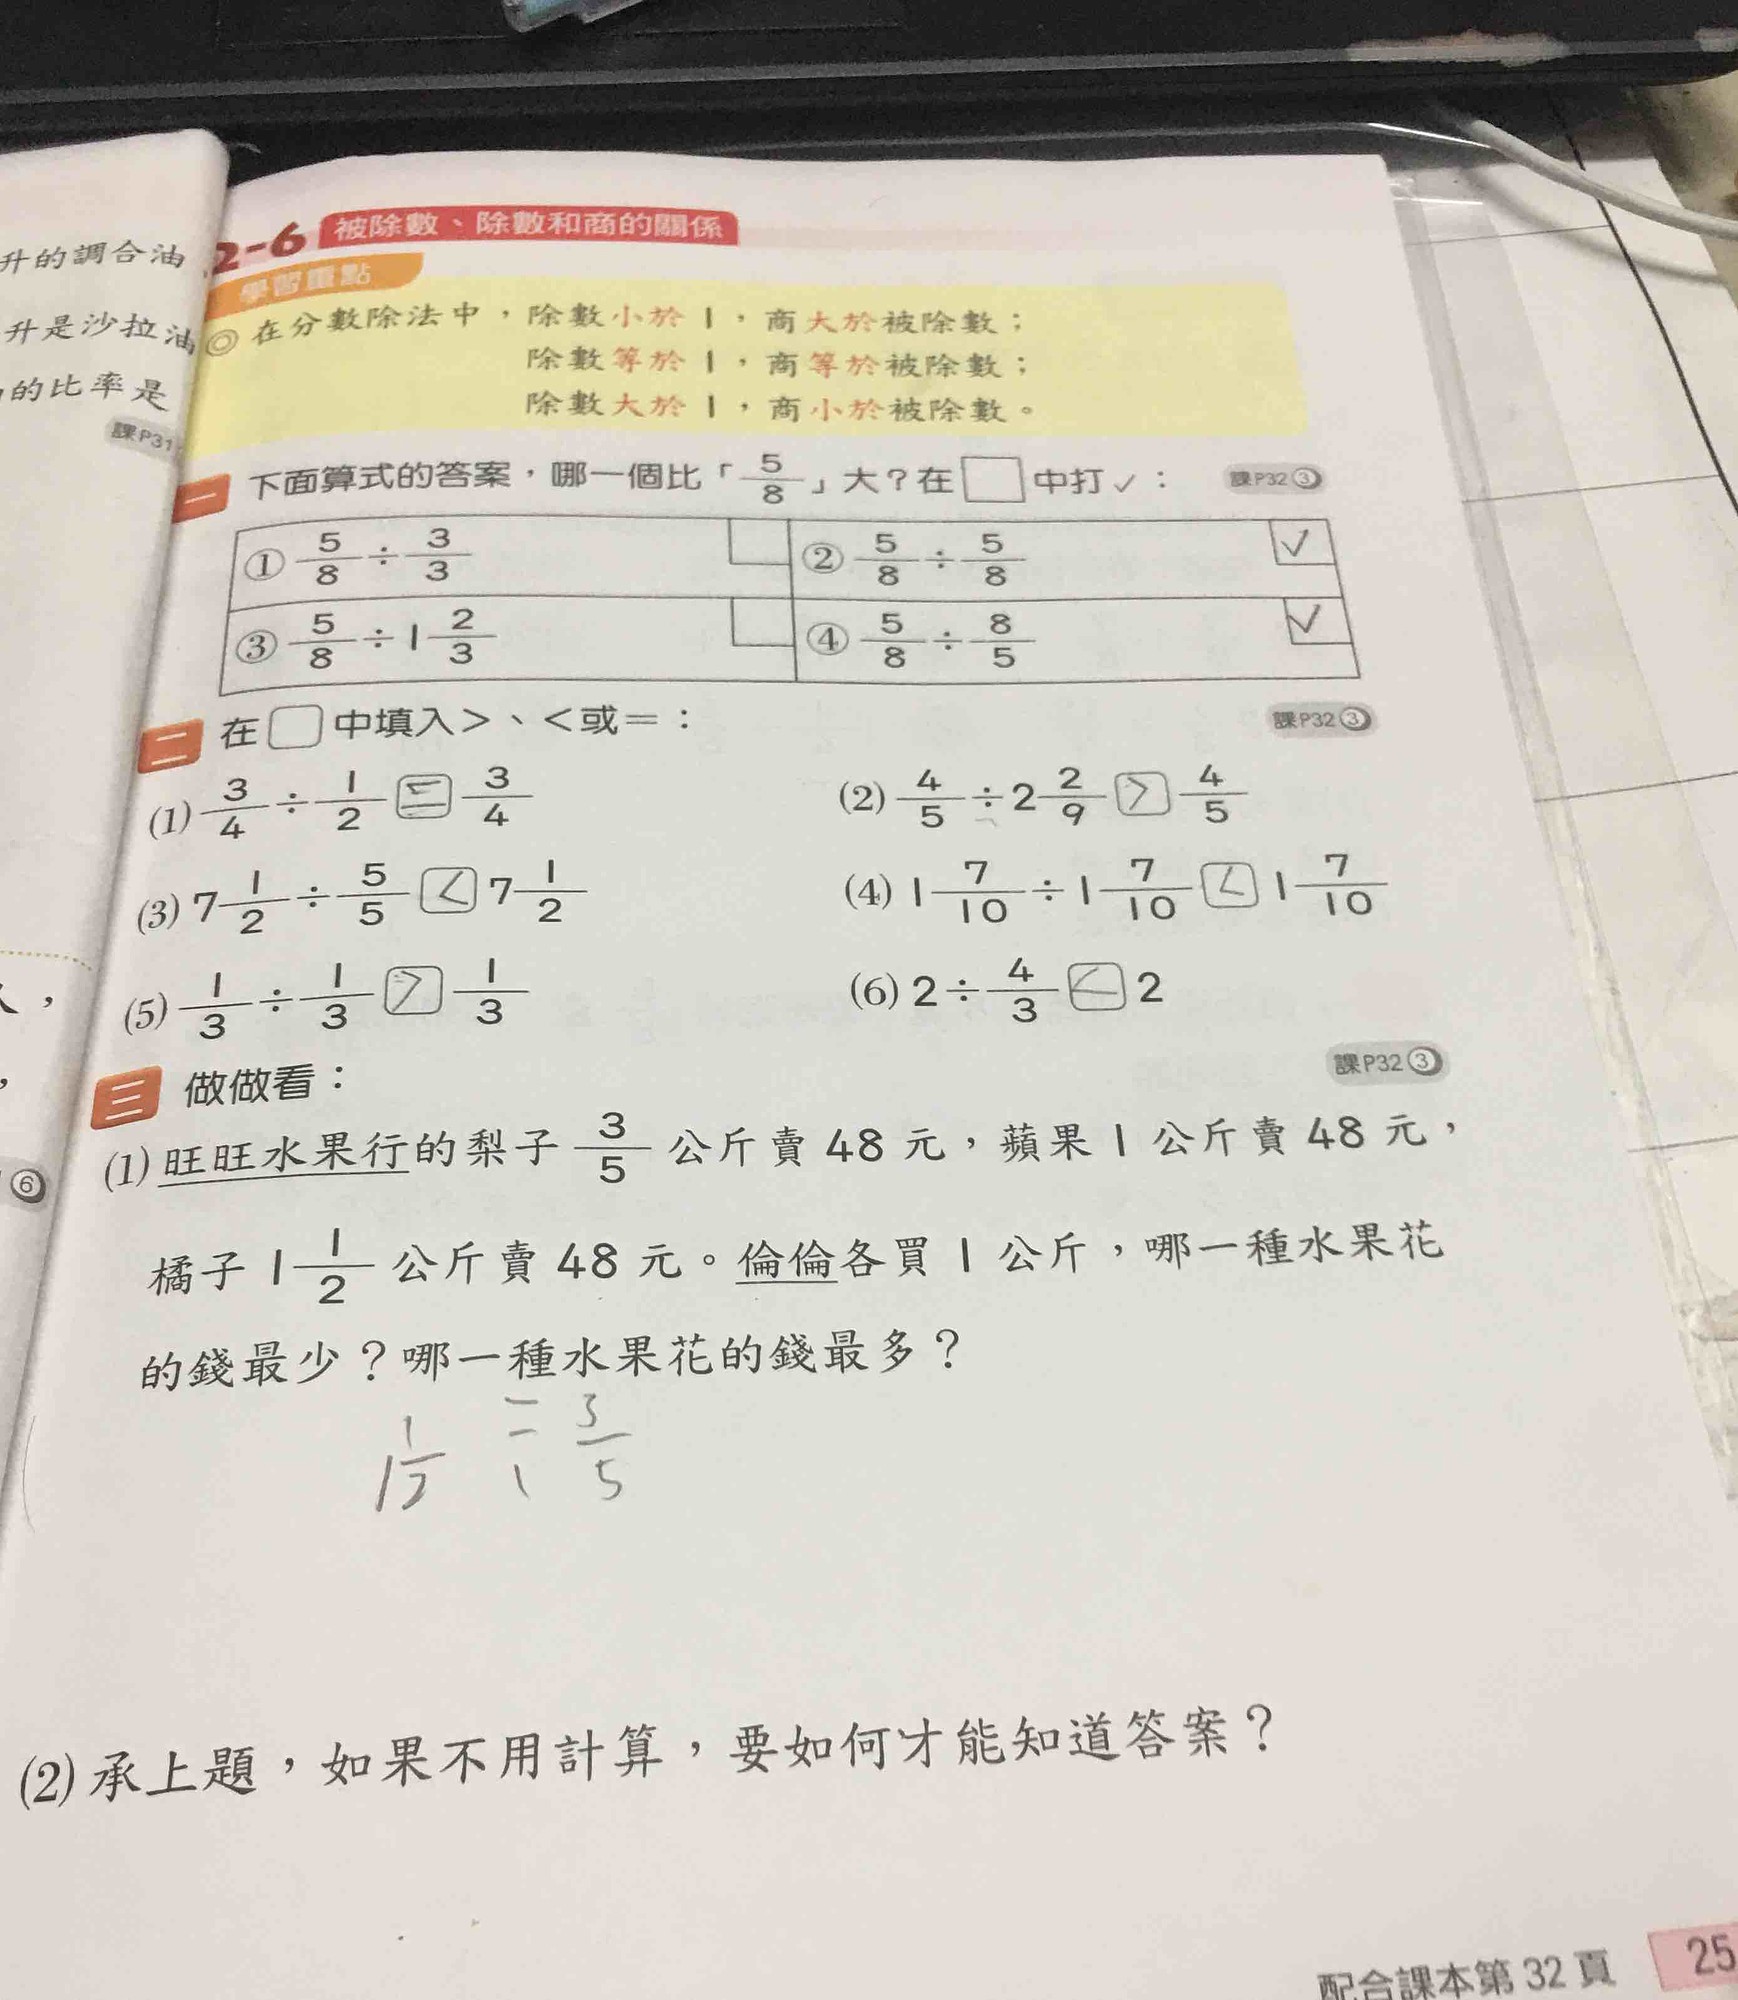 升的調合油
升是沙拉油
的比率是
課P31
2-6 被除數、除數和商的關係
學習重點
◎在分數除法中，除數小於1，商大於被除數；
除數等於1，商等於被除數；
除數大於1，商小於被除數。
一 下面算式的答案，哪一個比「5/8」大？在□中打✓： 課P32③
① 5/8÷3/3 □ ② 5/8÷5/8 ✓
③ 5/8÷1 2/3 □ ④ 5/8÷8/5 ✓
二 在□中填入>、<或=： 課P32③
(1) 3/4÷1/2 = 3/4 (2) 4/5÷2 2/9 > 4/5
(3) 7 1/2÷5/5 < 7 1/2 (4) 1 7/10÷1 7/10 < 1 7/10
(5) 1/3÷1/3 > 1/3 (6) 2÷4/3 < 2
⑥
三 做做看： 課P32③
(1)旺旺水果行的梨子3/5公斤賣48元，蘋果1公斤賣48元，
橘子1 1/2公斤賣48元。倫倫各買1公斤，哪一種水果花
的錢最少？哪一種水果花的錢最多？
1 1/2 3/5
(2)承上題，如果不用計算，要如何才能知道答案？
配合課本第32頁 25